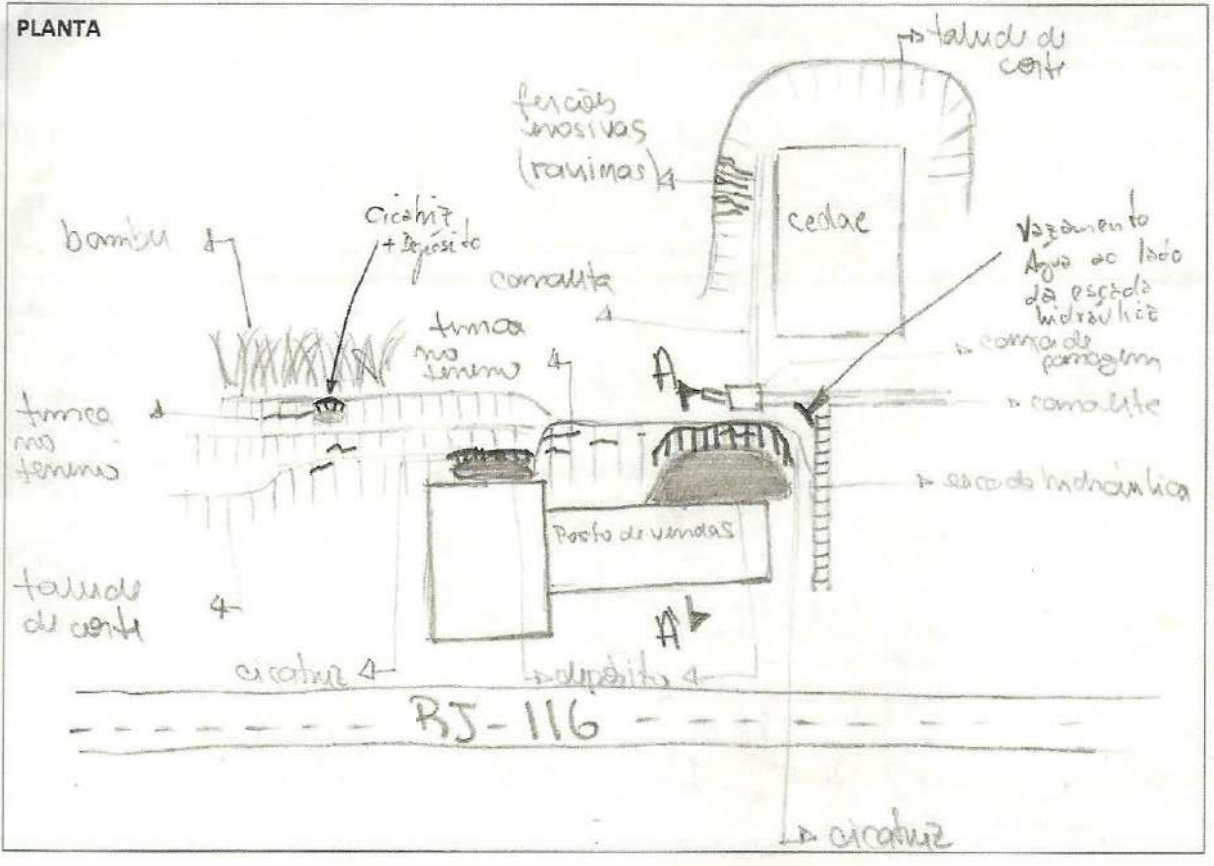 PLANTA
talude de
corte
feições
erosivas
(ravinas)
cedae
Cicatriz
+ Depósito
bambu
canaleta
trinca
no
terreno
Vazamento
Água ao lado
da escada
hidráulica
caixa de
passagem
A
canaleta
trinca
no
terreno
escada hidráulica
Posto de vendas
talude
de corte
A'
cicatriz
depósito
RJ-116
cicatriz